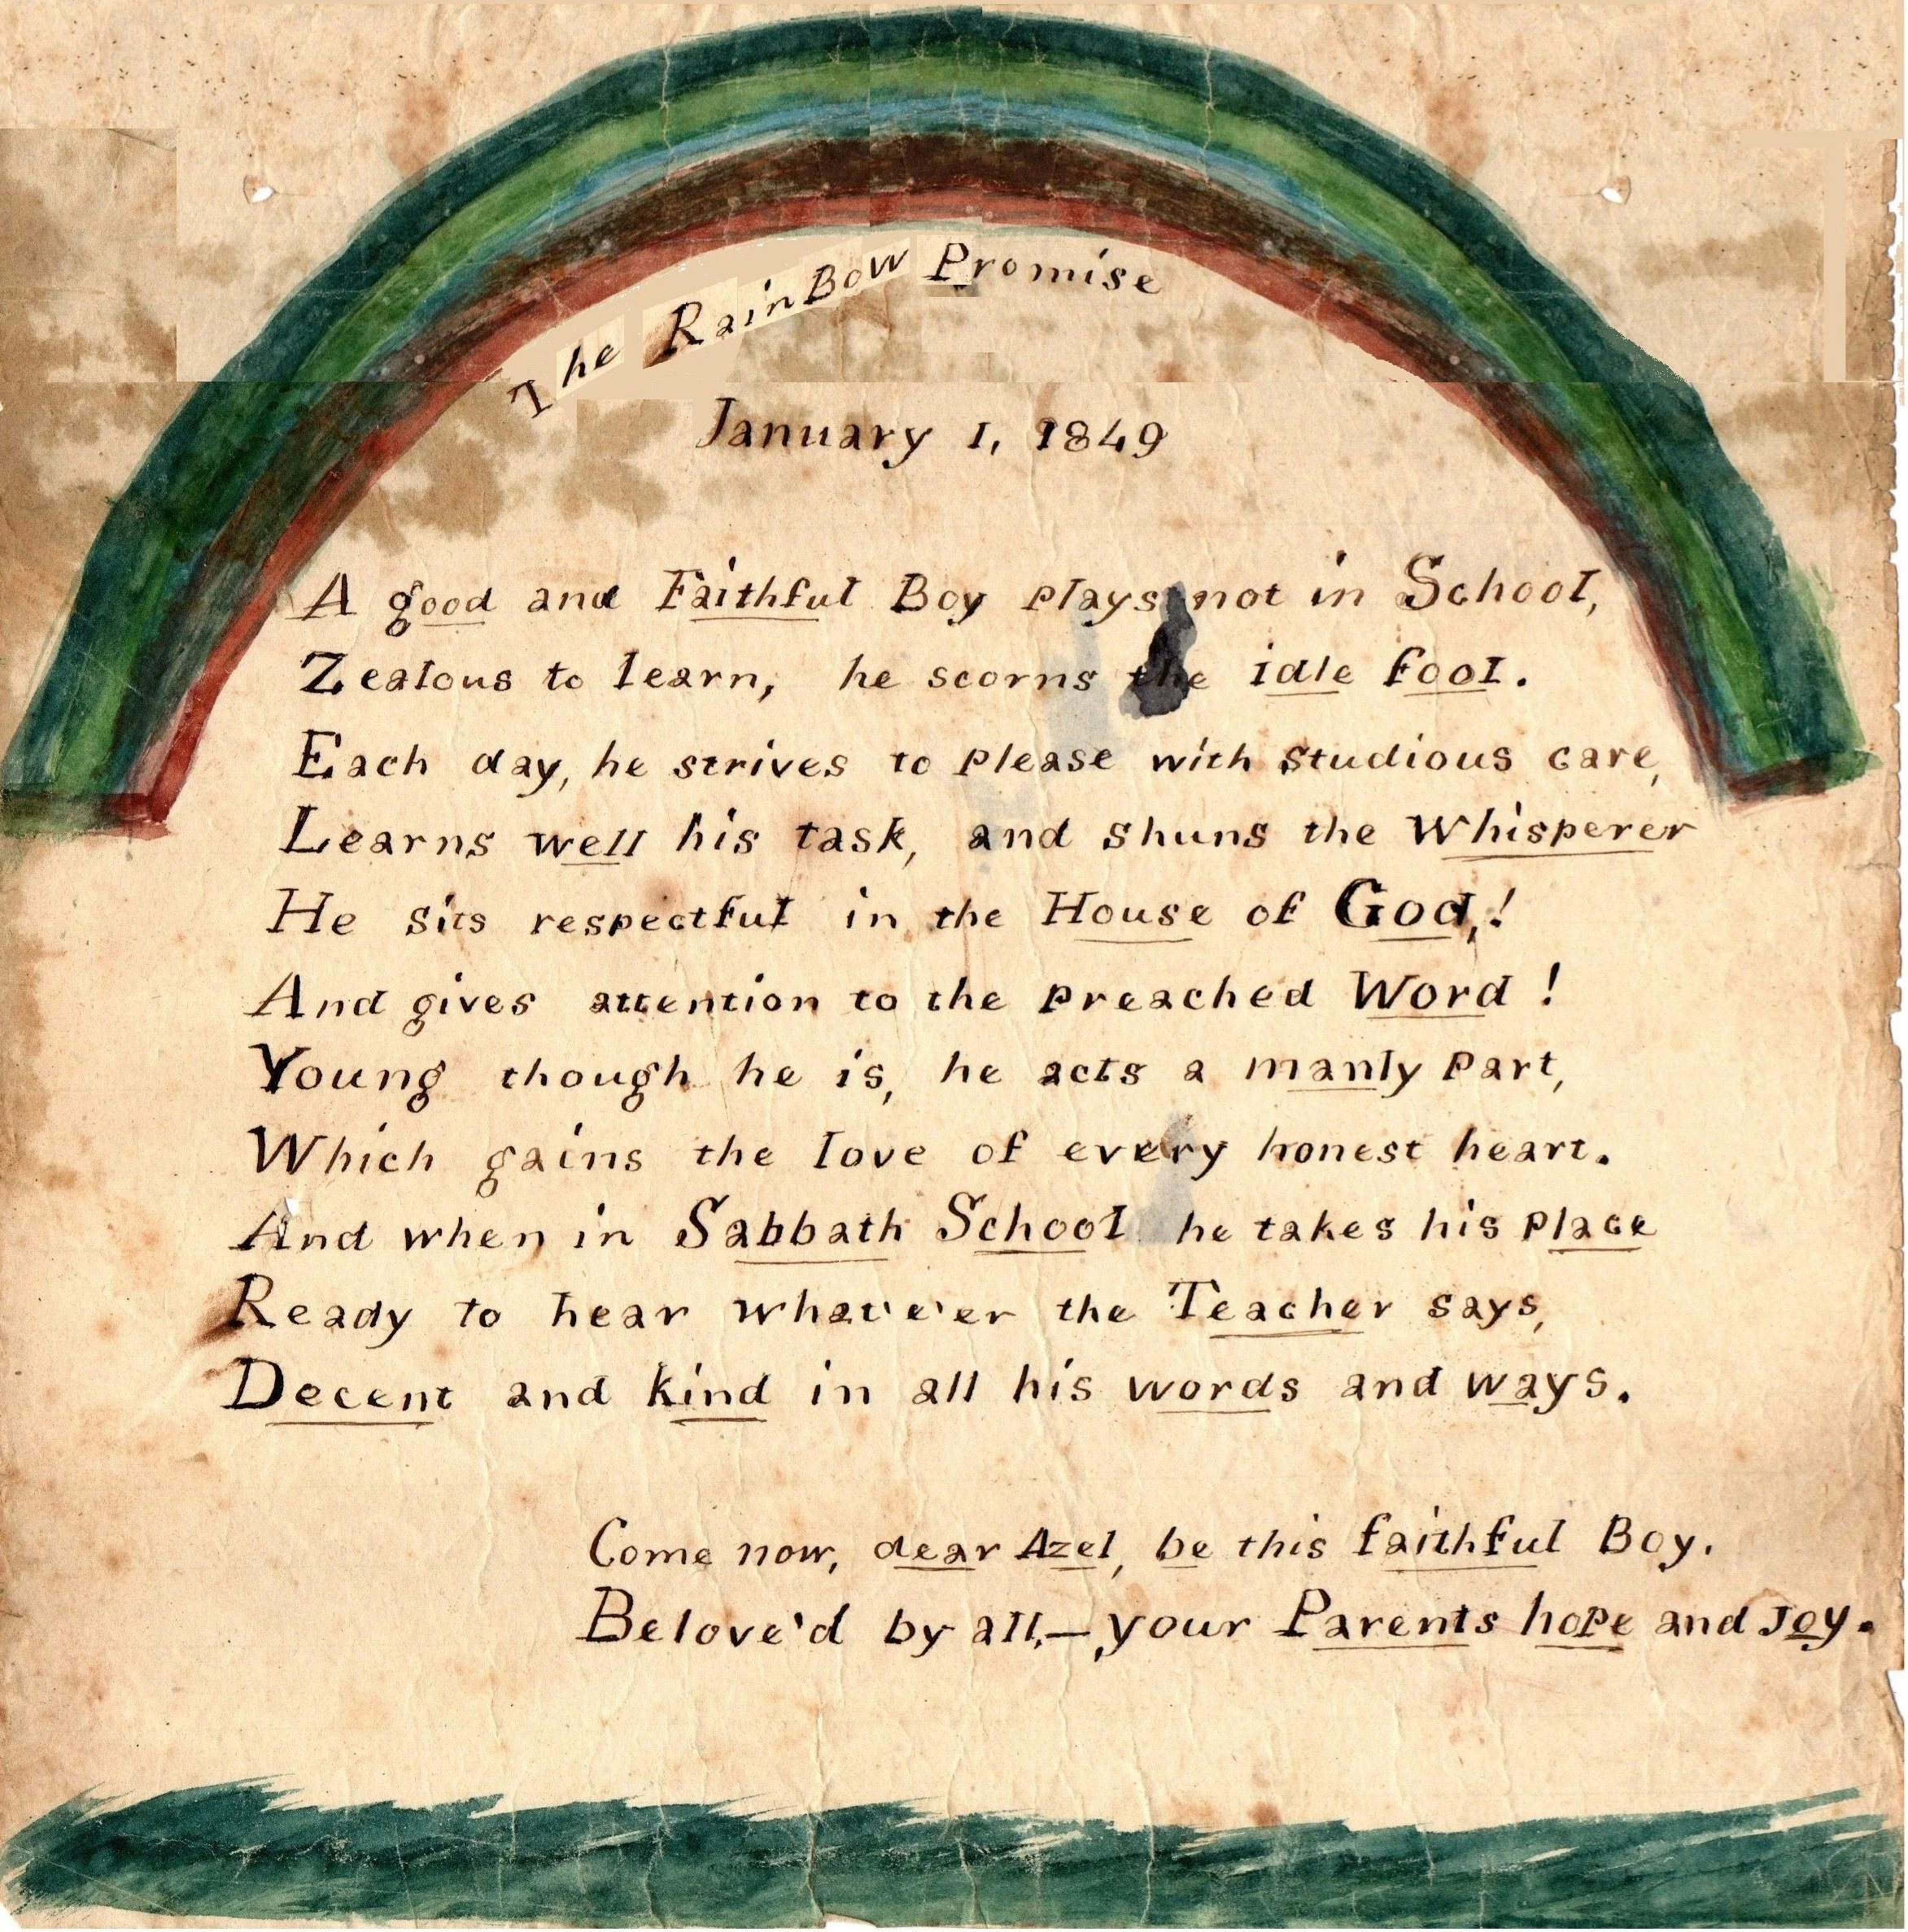 The RainBow Promise
January 1, 1849
A good and Faithful Boy plays not in School,
Zealous to learn, he scorns the idle fool.
Each day, he strives to please with studious care,
Learns well his task, and shuns the Whisperer
He sits respectful in the House of God,!
And gives attention to the preached Word !
Young though he is, he acts a manly part,
Which gains the love of every honest heart.
And when in Sabbath School he takes his place
Ready to hear what'e'er the Teacher says,
Decent and kind in all his words and ways.
Come now, dear Azel, be this faithful Boy.
Belove'd by all,—your Parents hope and Joy.